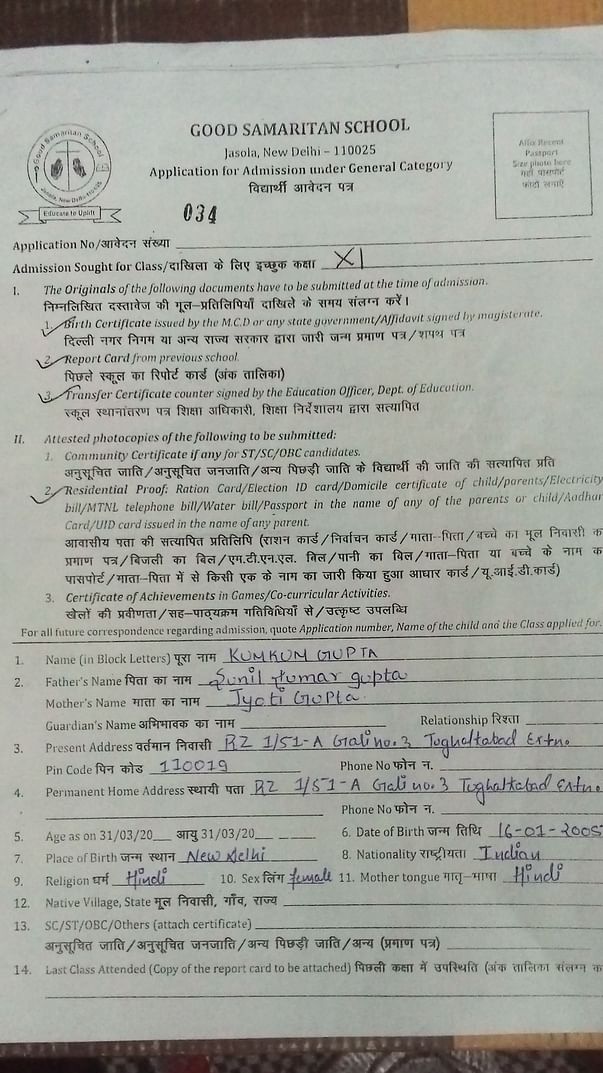 Good Samaritan School
Jasola, New Delhi-110025
Educate to Uplift
GOOD SAMARITAN SCHOOL
Jasola, New Delhi – 110025
Application for Admission under General Category
विद्यार्थी आवेदन पत्र
Affix Recent
Passport
Size photo here
यहाँ पासपोर्ट
फोटो लगाएँ
034
Application No/आवेदन संख्या
Admission Sought for Class/दाखिला के लिए इच्छुक कक्षा XI
I. The Originals of the following documents have to be submitted at the time of admission.
निम्नलिखित दस्तावेज की मूल–प्रतिलिपियाँ दाखिले के समय संलग्न करें।
1. Birth Certificate issued by the M.C.D or any state government/Affidavit signed by magisterate.
दिल्ली नगर निगम या अन्य राज्य सरकार द्वारा जारी जन्म प्रमाण पत्र/शपथ पत्र
2. Report Card from previous school.
पिछले स्कूल का रिपोर्ट कार्ड (अंक तालिका)
3. Transfer Certificate counter signed by the Education Officer, Dept. of Education.
स्कूल स्थानांतरण पत्र शिक्षा अधिकारी, शिक्षा निर्देशालय द्वारा सत्यापित
II. Attested photocopies of the following to be submitted:
1. Community Certificate if any for ST/SC/OBC candidates.
अनुसूचित जाति/अनुसूचित जनजाति/अन्य पिछड़ी जाति के विद्यार्थी की जाति की सत्यापित प्रति
2. Residential Proof: Ration Card/Election ID card/Domicile certificate of child/parents/Electricity
bill/MTNL telephone bill/Water bill/Passport in the name of any of the parents or child/Aadhar
Card/UID card issued in the name of any parent.
आवासीय पता की सत्यापित प्रतिलिपि (राशन कार्ड/निर्वाचन कार्ड/माता–पिता/बच्चे का मूल निवासी
प्रमाण पत्र/बिजली का बिल/एम.टी.एन.एल. बिल/पानी का बिल/माता–पिता या बच्चे के नाम
पासपोर्ट/माता–पिता में से किसी एक के नाम का जारी किया हुआ आधार कार्ड/यू.आई.डी.कार्ड)
3. Certificate of Achievements in Games/Co-curricular Activities.
खेलों की प्रवीणता/सह–पाठ्यक्रम गतिविधियाँ से/उत्कृष्ट उपलब्धि
For all future correspondence regarding admission, quote Application number, Name of the child and the Class applied for.
1. Name (in Block Letters) पूरा नाम KUMKUM GUPTA
2. Father's Name पिता का नाम Sunil Kumar gupta
Mother's Name माता का नाम Jyoti GUPTA.
Guardian's Name अभिभावक का नाम Relationship रिश्ता
3. Present Address वर्तमान निवासी RZ 1/51-A Gali no. 3 Tughaltabad Extn.
Pin Code पिन कोड 110019 Phone No फोन न.
4. Permanent Home Address स्थायी पता RZ 1/51-A Gali no. 3 Tughaltabad Extn.
Phone No फोन न.
5. Age as on 31/03/20 आयु 31/03/20 6. Date of Birth जन्म तिथि 16-01-2005
7. Place of Birth जन्म स्थान New delhi 8. Nationality राष्ट्रीयता Indian
9. Religion धर्म Hindi 10. Sex लिंग female 11. Mother tongue मातृ–भाषा Hindi
12. Native Village, State मूल निवासी, गाँव, राज्य
13. SC/ST/OBC/Others (attach certificate)
अनुसूचित जाति/अनुसूचित जनजाति/अन्य पिछड़ी जाति/अन्य (प्रमाण पत्र)
14. Last Class Attended (Copy of the report card to be attached) पिछली कक्षा में उपस्थिति (अंक तालिका संलग्न